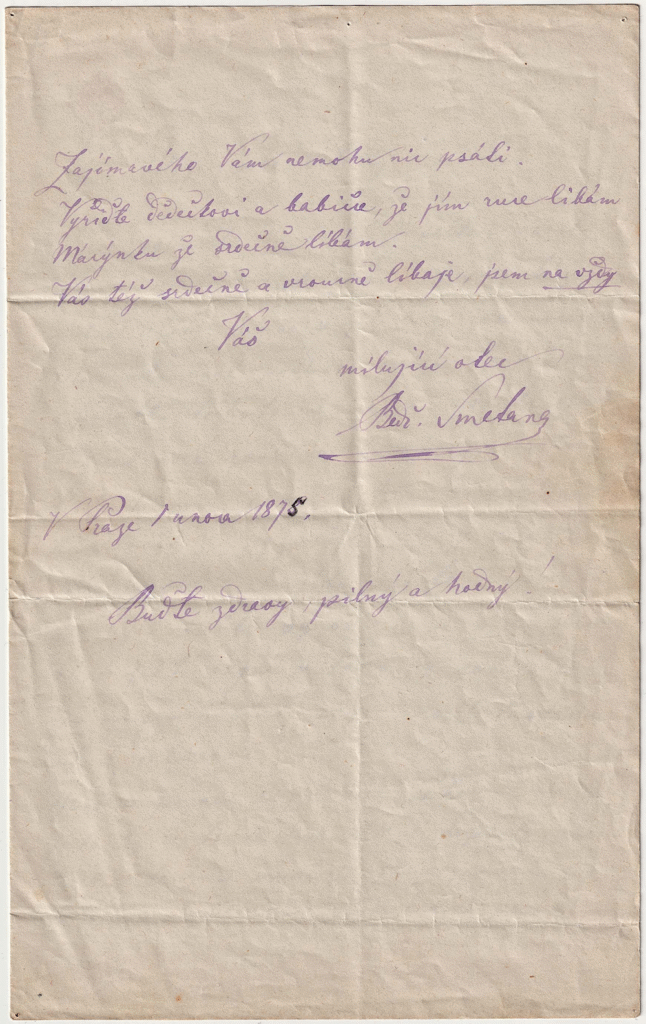 Zajímavého Vám nemohu nic psáti.
Vyřiďte dědečkovi a babičce, že jim ruce líbám
Marýnku že srdečně líbám.
Vás též srdečně a vroucně líbaje, jsem na vždy
Váš
milující otec
Bedř. Smetana
V Praze 1 února 1875.
Buďte zdravy, pilný a hodný!